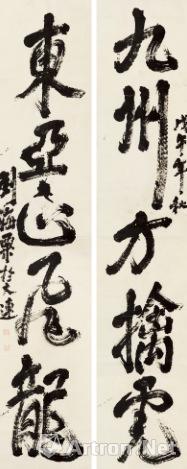 九州方擒虎
戊午年秋
東亞正飛龍
劉海粟於大連
Artron.Net